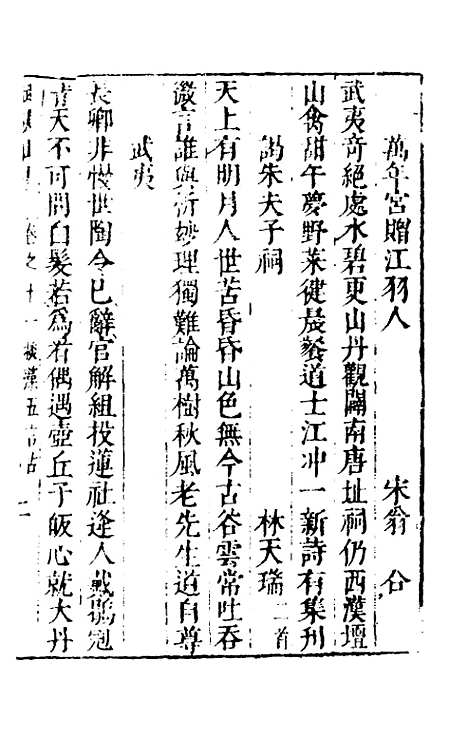 萬年宮贈江羽人 宋翁合
武夷奇絕處水碧更山丹觀闢南唐址祠仍西漢壇
山禽甜午夢野菜健晨餐道士江冲一新詩有集刊
謁朱夫子祠 林天瑞二首
天上有明月人世苦昏昏山色無今古谷雲常吐吞
微言誰與析妙理獨難論萬樹秋風老先生道自尊
武夷
長卿非慢世陶令已辭官解組投蓮社逢人戴鶡冠
青天不可問白髮若為看偶遇壺丘子皈心就大丹
武夷山 卷之十一 五言古